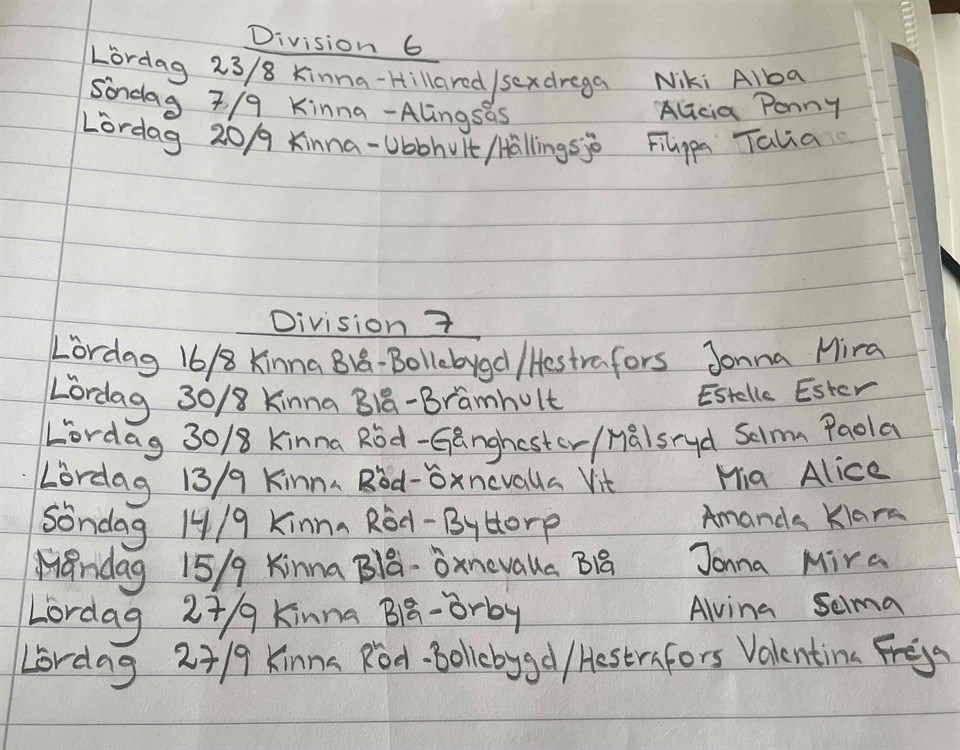 Division 6
Lördag 23/8 Kinna-Hillared/sexdrega Niki Alba
Söndag 7/9 Kinna-Alingsås Alicia Penny
Lördag 20/9 Kinna-Ubbhult/Hällingsjö Filippa Talia
Division 7
Lördag 16/8 Kinna Blå-Bollebygd/Hestrafors Jonna Mira
Lördag 30/8 Kinna Blå-Brämhult Estelle Ester
Lördag 30/8 Kinna Röd-Gånghester/Målsryd Selma Paola
Lördag 13/9 Kinna Röd-Öxnevalla Vit Mia Alice
Söndag 14/9 Kinna Röd-Byttorp Amanda Klara
Måndag 15/9 Kinna Blå-Öxnevalla Blå Jonna Mira
Lördag 27/9 Kinna Blå-Örby Alvina Selma
Lördag 27/9 Kinna Röd-Bollebygd/Hestrafors Valentina Freja